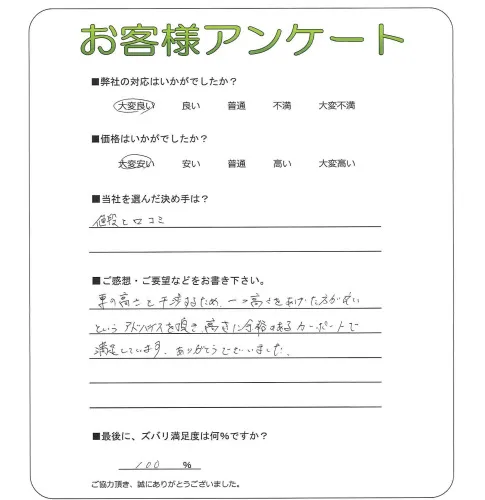 お客様アンケート
■弊社の対応はいかがでしたか？
大変良い 良い 普通 不満 大変不満
■価格はいかがでしたか？
大変安い 安い 普通 高い 大変高い
■当社を選んだ決め手は？
値段と口コミ
■ご感想・ご要望などをお書き下さい。
車の高さと干渉するため、一つ高さをあげた方が良い
というアドバイスを頂き高さに余裕のあるカーポートで
満足しています。ありがとうございました。
■最後に、ズバリ満足度は何%ですか？
100 %
ご協力頂き、誠にありがとうございました。